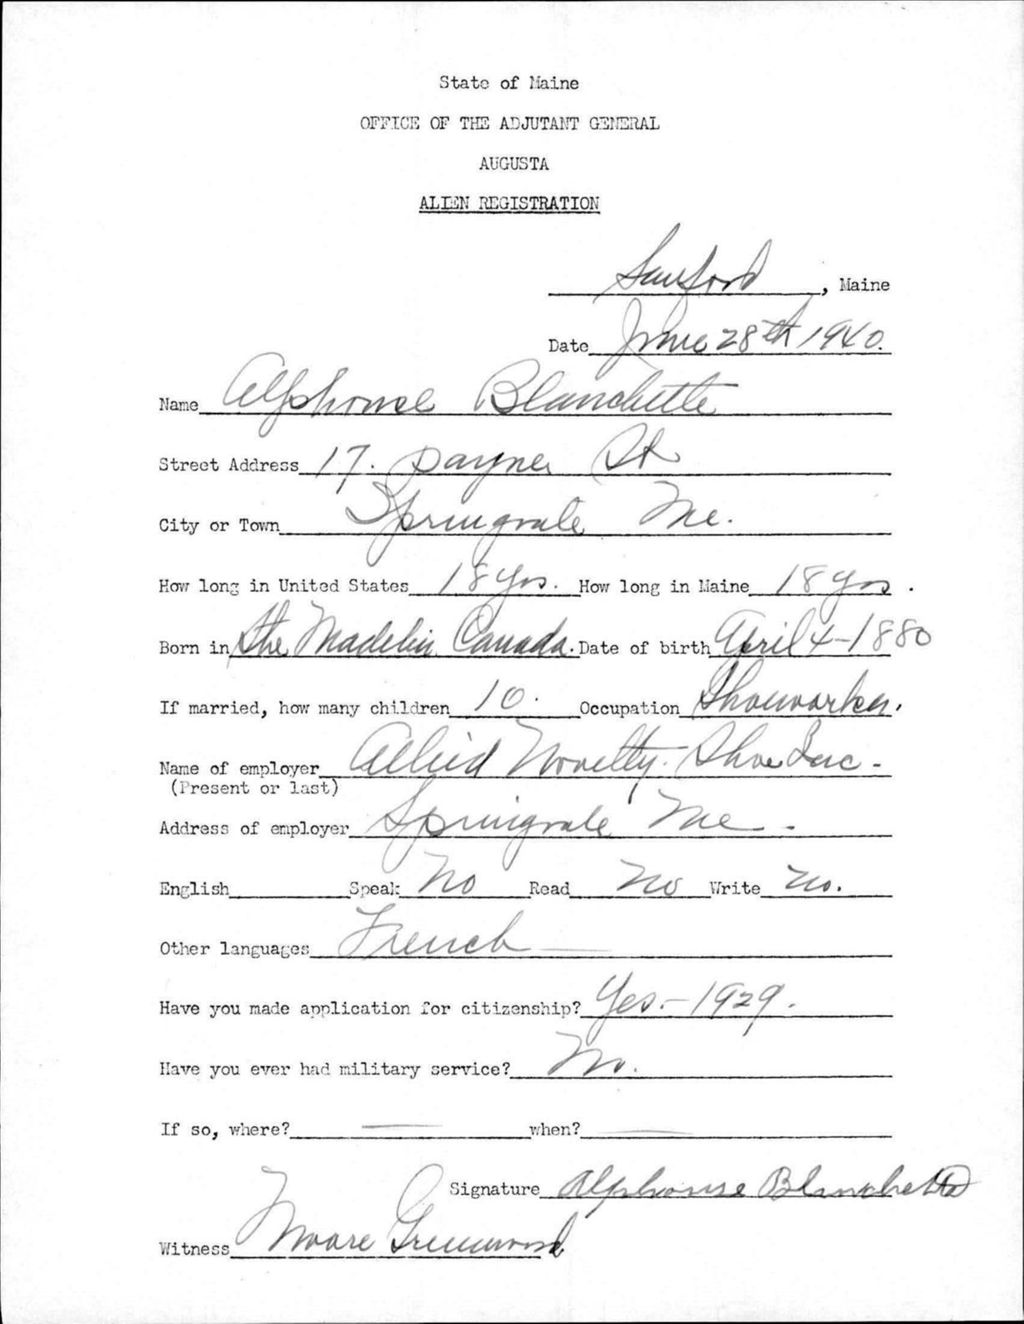 State of Maine
OFFICE OF THE ADJUTANT GENERAL
AUGUSTA
ALIEN REGISTRATION
Sanford, Maine
Date June 28th 1940.
Name Alphonse Blanchette
Street Address 17. Payne St
City or Town Springvale Me.
How long in United States 18 yrs. How long in Maine 18 yrs.
Born in Ste Madelin Canada. Date of birth April 4-1880
If married, how many children 10. Occupation Shoeworker.
Name of employer Allied Novelty Shoe Inc-
(Present or last)
Address of employer Springvale Me-
English Speak No Read No Write No.
Other languages French
Have you made application for citizenship? Yes.-1929.
Have you ever had military service? No.
If so, where? when?
Signature Alphonse Blanchette
Witness Moore Greenwood